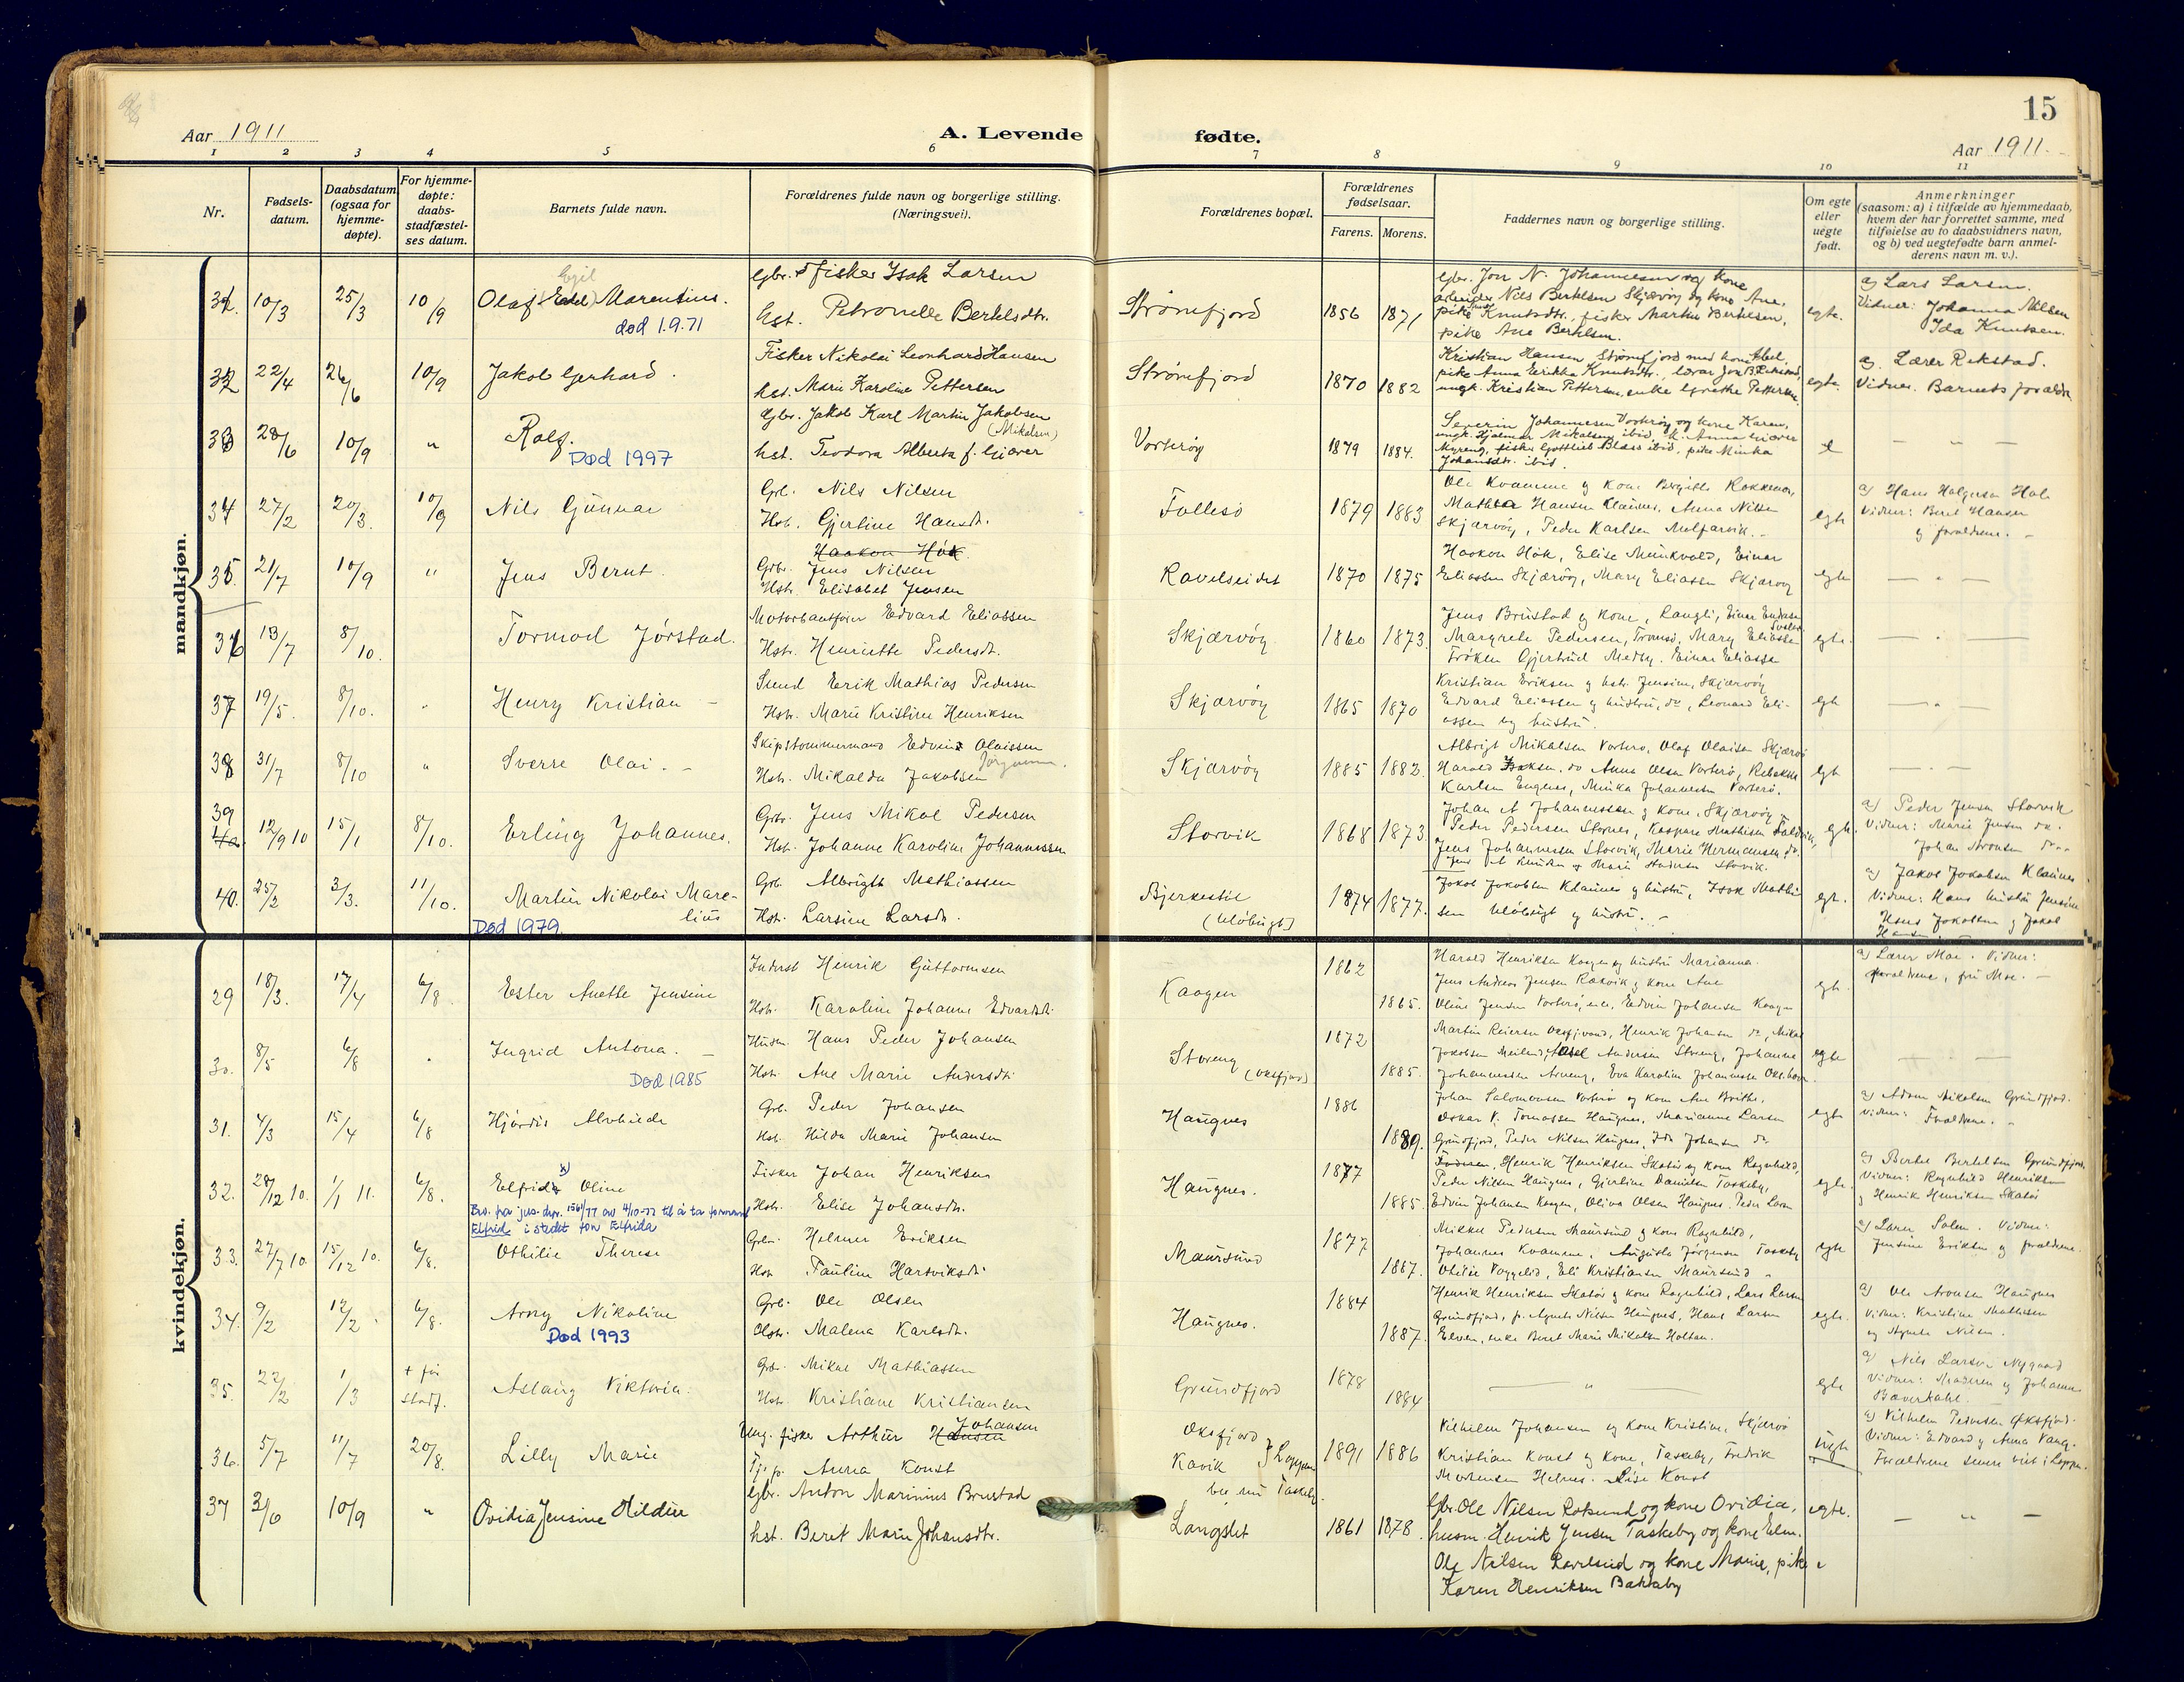 15
Aar 1911
A. Levende fødte.
Aar 1911.
1 2 3 4 5 6 7 8 9 10 11
Nr.
Fødsels-
datum.
Daabsdatum
(ogsaa for
hjemme-
døpte).
For hjemme-
døpte:
daabs-
stadfæstel-
ses datum.
Barnets fulde navn.
Forældrenes fulde navn og borgerlige stilling.
(Næringsvei).
Forældrenes bopæl.
Forældrenes
fødselsaar.
Farens. Morens.
Faddernes navn og borgerlige stilling.
Om egte
eller
uegte
født.
Anmerkninger
(saasom: a) i tilfælde av hjemmedaab,
hvem der har forrettet samme, med
tilføielse av to daabsvidners navn,
og b) ved uegtefødte barn anmel-
derens navn m. v.).
mandkjøn.
10/3 25/3 10/9
Egil
Olaf Marensius.
død 1.9.71
Gbr. & fisker Isak Larsen
hst. Petronelle Bertelsdtr.
Strømfjord 1856 1871
Gbr. Jon N. Johannesen og kone
arbeider Nils Bertelsen Skjærvøy og kone Ane,
pike Knutsdtr., fisker Martin Bertelsen,
pike Ane Bertelsen.
egte.
a) Lars Larsen.
Vidner: Johanna Nilsen
Ida Knutsen.
32 22/4 26/6 10/9
Jakob Gerhard.
Fisker Nikolai Leonhard Hansen
hst. Marie Karoline Pettersen
Strømfjord 1870 1882
Kristian Hansen Strømfjord med kone
ungk. Kristian Pettersen, enke Grethe Pettersen.
egte.
a). Lærer Rekstad.
Vidner. Barnets forældre
33 28/6 10/9 "
Rolf.
Død 1997
Gbr. Jakob Karl Martin Jakobsen
(Mikalsen)
hst. Teodora Alberta f. Giæver
Vorterøy 1879 1884.
Severin Johannesen Vorterøy og kone Karen,
ungk. Hjalmar Mikalsen ibid., Anna Giæver
Myreng, fisker Gottlieb Blæs ibid., pike Minka
Johansdtr. ibid.
— " —
34 27/2 20/3. 10/9
Nils Gunnar
Grb. Nils Nilsen
Hst. Gjertine Hansdt.
Follesø 1879 1883
Ole Kvamme og kone Bergitte Rokkemo,
Mathea Hansen Klaunes, Anna Nilsen
Skjærvøy, Peder Karlsen Molfarvik. -
egte
Vidner: Beret Hansen
og forældrene. -
35. 21/7 10/9 "
Jens Bernt.
Haakon Høk.
Grbr. Jens Nilsen
Hstr. Elisabet Jensen
Ravelseidet 1870 1875
Haakon Høk, Elise Meinkvold, Einar
Eliassen Skjærvøy, Mary Eliassen Skjærvøy
egte — " —
36 13/7 8/10.
Tormod Jørstad.
Motorbaatfører Edvard Eliassen
Hstr. Henriette Pedersdt.
Skjærvøy 1860 1873.
Jens Brustad og kone, Langli, Einar
Margrete Pedersen, Tromsø, Mary Eliassen
Frøken Gjertrud Medby. Einar Eliassen
egte. — " —
37 19/5. 8/10. "
Henry Kristian -
Erik Mathias Pedersen
Hstr. Marie Kristine Henriksen
Skjærvøy 1865 1870
Kristian Eriksen og hstr. Jensine, Skjærvøy
Edvard Eliassen og hustru, do, Leonard Eli-
assen og hustru.
egte — " —
38 31/7 8/10 "
Sverre Olai. -
Skipstømmermand Edvin Olaissen
Jørgensen.
Hstr. Mikalda Jakobsen
Skjærvøy 1885 1882.
Albrigt Mikalsen Vorterø, Olaf Olaisen Skjærvø
Harald Isaksen do Anna Olsen Vorterø, Rebekka
Karlsen Engnes, Minka Johannesen Vorterø.
egte — " —
39 12/9 10 15/1 8/10.
Erling Johannes.
Grbr. Jens Mikal Pedersen
Hstr. Johanne Karoline Johannessen
Storvik 1868 1873.
Johan A Johannessen og kone, Skjærvøy
Peder Pedersen Storvnes, Kaspara Mathisen
Jens Johannessen Storvik, Marie Hermansen do.
egte.
a) Peder Jensen Storvik
Vidner: Marie Jensen do.
Johan Aronsen do
40. 25/2 3/3. 11/10.
Martin Nikolai Mare-
lius
Død 1979.
Grb. Albrigth Mathiassen
Hstr. Larsine Larsdt.
Bjerkestie
(Uløbugt) 1874 1877.
Jakob Jakobsen Klaunes og hustru, Isak Mathi-
sen Uløbugt og hustru. -
egt.
a) Jakob Jakobsen Klaunes
Vidner: Hans hustru Jensine
Hans Jakobsen og Jakob
Hansen
kvindekjøn.
29 18/3. 17/4 6/8
Ester Anette Jensine
Inderst Henrik Guttormsen
Hstr. Karoline Johanne Edvardsdt.
Kaagen 1862 1865.
Harald Henriksen Kaagen og hustru Marianna.
Jens Andreas Jensen Rakvik og kone Ane
Oline Jensen Vorterø, enke, Edvin Johansen Kaagen
egt.
a) Lærer Moe. Vidner:
forældrene, fru Moe. -
30. 8/5 6/8 "
Ingrid Antona. -
Død 1985
Husm. Hans Peder Johansen
Hstr. Ane Marie Andersdt.
Storeng
(Oksfjord) 1872 1885.
Martin Reiersen Oksfjord, Henrik Johansen do, Mikal
Andersen Storeng, Johanne
Johannessen Arneng, Eva Karoline Johannessen
egte — " —
31. 4/3 15/4 6/8
Hjørdis Alvhilde
Grb. Peder Johansen
Hst. Hilda Marie Johansen
Haugnes 1886 1889.
Johan Salomonsen Vorterø og kone Ane Brithe,
Oskar V. Tomassen Haugnes, Marianne Larsen
Grundfjord, Peder Nilsen Haugnes, Ida Johansen do
egte
a) Adam Mikalsen Grundfjord.
Vidner: Forældrene. -
32. 28/12 10. 1/1 11. 6/8.
x)
Elfrida Oline
Bev. fra jus.-dep. 1561/77 av 4/10-77 til å ta fornavnet
Elfrid i stedet for Elfrida
Fisker Johan Henriksen
Hstr. Elise Johansdt.
Haugnes. 1877 1885.
Henrik Henriksen Skatø og kone Ragnhild,
Peder Nilsen Haugnes, Gjertine Danielsen Taskeby,
Edvin Johansen Kaagen, Oliva Olsen Haugnes. Peder Larsen
egte
a) Bertel Bertelsen Grundfjord.
Vidner: Ragnhild Henriksen
og Henrik Henriksen Skatø
33. 27/7 10. 15/12 10. 6/8.
Othilie Therese
Helmer Eriksen
Hstr. Pauline Hartviksdt.
Maursund 1877 1887.
Mikkel Pedersen Maursund og kone Ragnhild,
Johannes Kvamme, Augusta Jørgensen Taskeby
Otelie Voggelid, Eli Kristiansen Maursund
egte
a) Lærer Solem. Vidner:
Jensine Eriksen og forældrene.
34. 9/2 12/2 6/8.
Arny Nikoline
Død 1993
Grb. Ole Olsen
Hstr. Malena Karlsdt.
Haugnes. 1884 1887.
Henrik Henriksen Skatø og kone Ragnhild, Lars Larsen
Grundfjord, p. Agnete Nilsen Haugnes, Hans Larsen
Elven, enke Beret Marie Mikalsen Holtan.
egte.
a) Ole Aronsen Haugnes
Vidner: Kristine Mathisen
og Agnete Nilsen.
35. 22/2 1/3
+ før
stadf.
Aslaug Viktoria.
Grb. Mikal Mathiassen
Hstr. Kristiane Kristiansen
Grundfjord 1878 1884
— " —
egte
a) Nils Larsen Nygaard
Vidner: Moderen og Johanne
36. 5/7 11/7 20/8.
Lilly Marie
Ung. fisker Arthur Hansen Johansen
Tj. p. Anna Konst
Oksfjord
Kavik } Loppen
bor nu Taskeby. 1891 1886
Vilhelm Johansen og kone Kristine, Skjærvø
Kristian Konst og kone, Taskeby, Fredrik
Mortensen Helnes. Lise Konst
uegte
a) Vilhelm Pedersen Oksfjord.
Vidner: Edvard og Anna Vang.
Forældrene senere viet i Loppen.
37 3/6 10/9 "
Ovidia Jensine Hildur
Gbr. Anton Marinius Brustad
hst. Berit Marie Johansdtr.
Langslet 1861 1878.
Gbr. Ole Nilsen Rotsund og kone Ovidia,
husm. Henrik Jensen Taskeby og kone Elen.
Ole Nilsen Ravelseid og kone Marie, pike
Karen Henriksen Bakkeby
egte. — " —